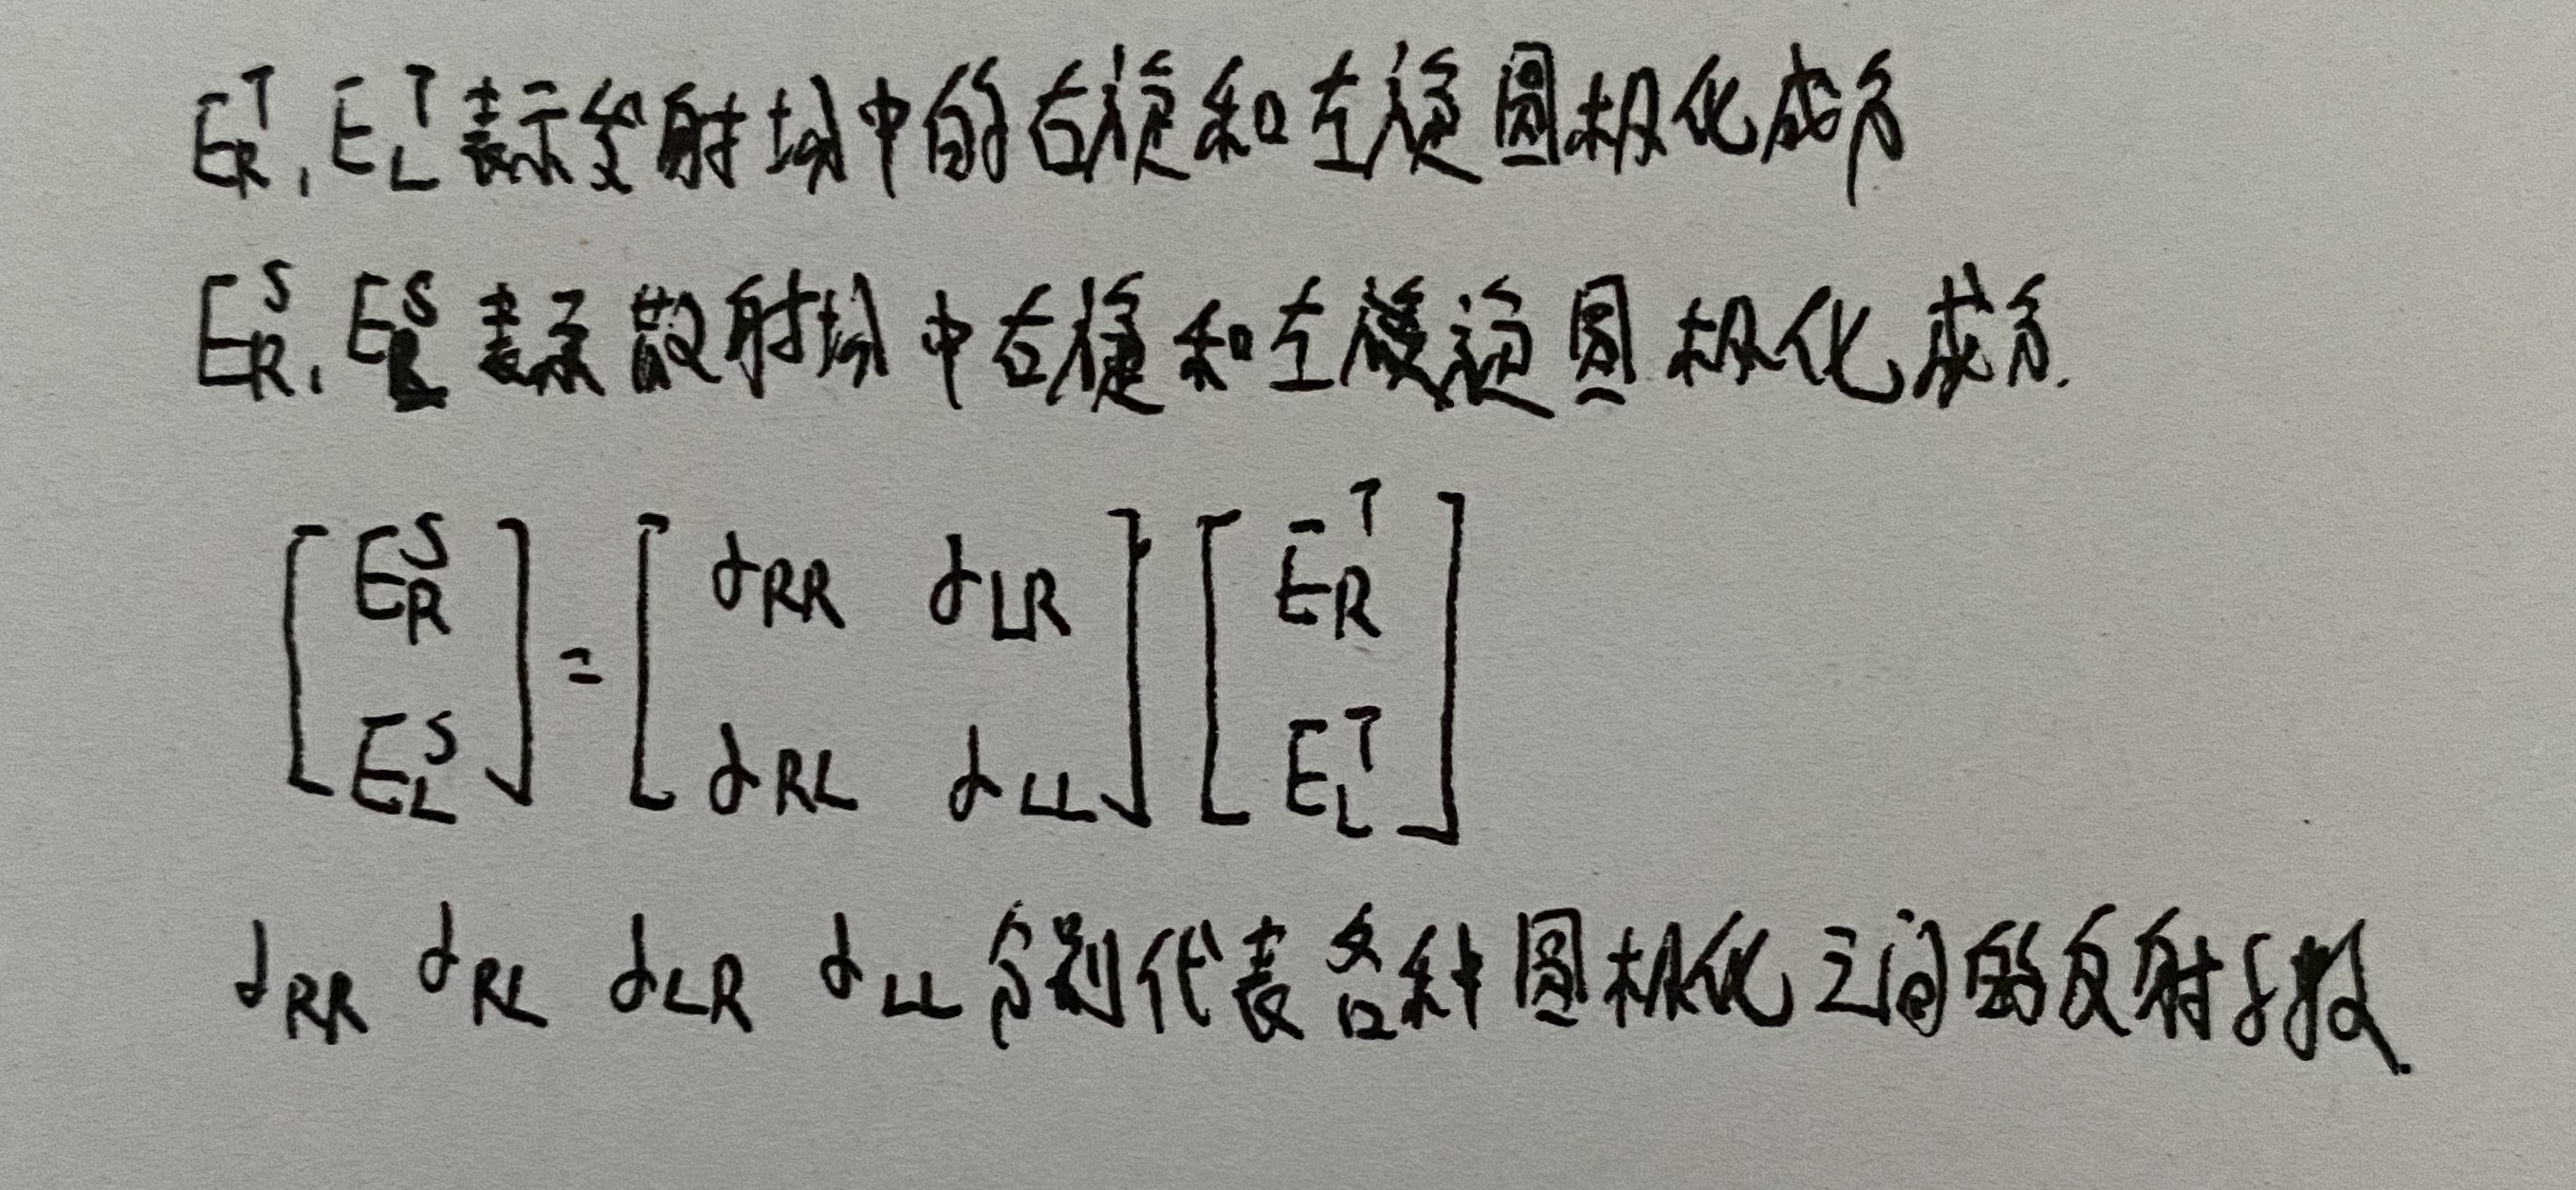 E_R^T, E_L^T 表示发射场中的右旋和左旋圆极化成分
E_R^S, E_L^S 表示散射场中右旋和左旋圆极化成分.
[E_R^S E_L^S] = [α_RR α_LR α_RL α_LL] [E_R^T E_L^T]
α_RR α_RL α_LR α_LL 分别代表各种圆极化之间的反射系数.